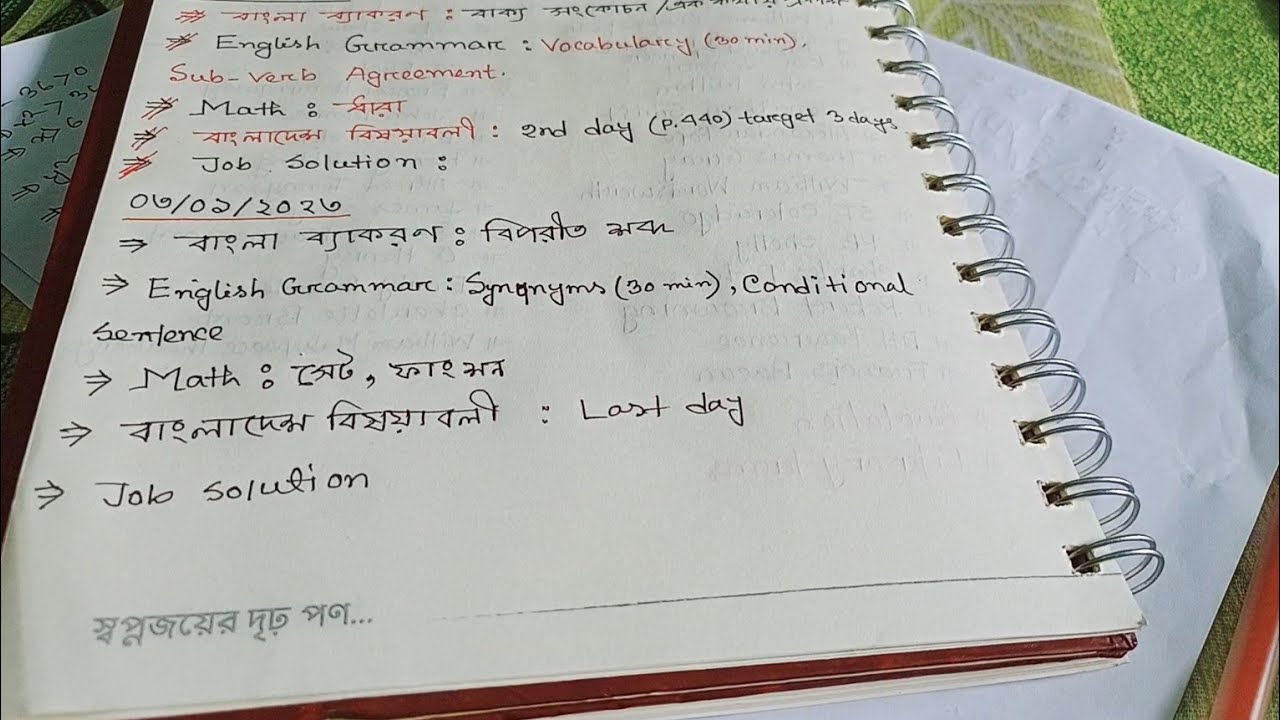 ⇒ বাংলা ব্যাকরণ : বাক্য সংকোচন /এক কথায় প্রকাশ
⇒ English Grammar : Vocabulary (30 min),
Sub-verb Agreement.
⇒ Math : ধারা
⇒ বাংলাদেশ বিষয়াবলী : 2nd day (P.440) target 3 days
⇒ Job Solution :
০৩/০১/২০২৩
⇒ বাংলা ব্যাকরণ : বিপরীত শব্দ
⇒ English Grammar : Synonyms (30 min), Conditional
Sentence
⇒ Math : সেট, ফাংশন
⇒ বাংলাদেশ বিষয়াবলী : Last day
⇒ Job Solution
স্বপ্নজয়ের দৃঢ় পণ...
3670